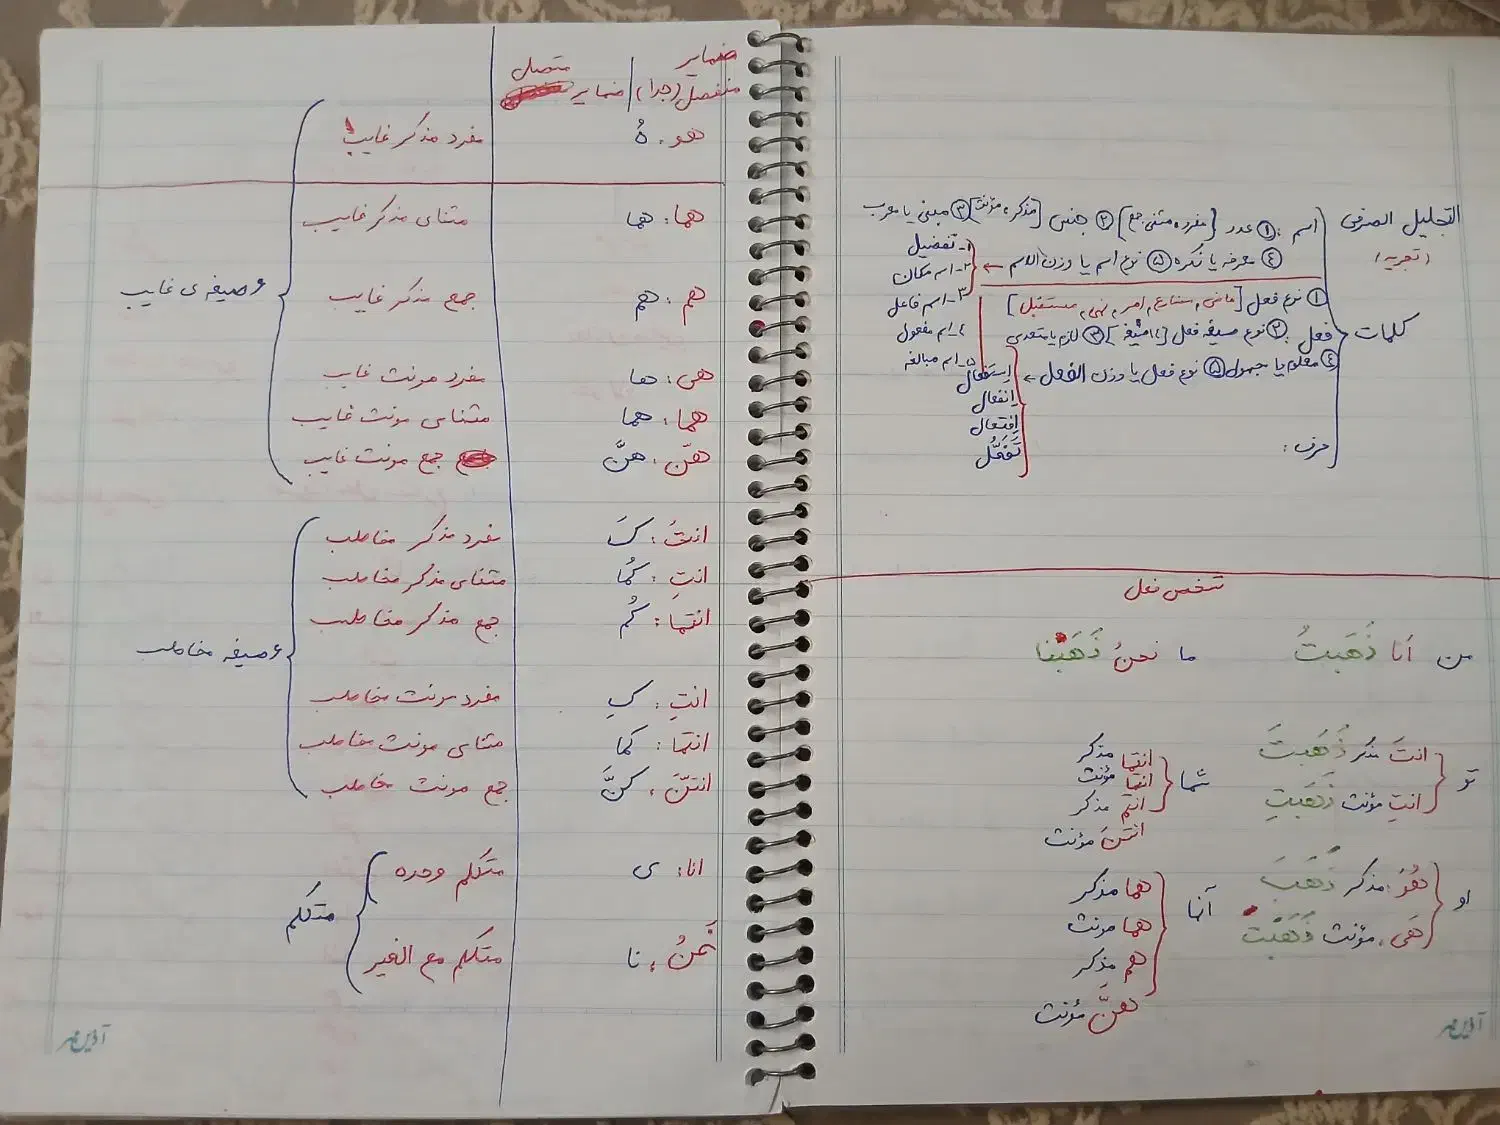 التحلیل الصرفی
(تجزیه)
کلمات
اسم: ① عدد [مفرد، مثنی، جمع] ② جنس [مذکر، مؤنث] ③ مبنی یا معرب
④ معرفه یا نکره ⑤ نوع اسم یا وزن الاسم ←
۱- تفضیل
۲- اسم مکان
۳- اسم فاعل
۴- اسم مفعول
۵- اسم مبالغه
فعل: ① نوع فعل [ماضی، مضارع، امر، نهی، مستقبل]
② نوع صیغه فعل [۱۴ صیغه] ③ لازم یا متعدی
④ معلوم یا مجهول ⑤ نوع فعل یا وزن الفعل ←
اِستفعال
اِنفعال
اِفتعال
تَفَعُّل
حرف:
شخص فعل
من اَنا ذَهَبتُ ما نحنُ ذَهَبْنا
تو
انتَ مذکر ذَهَبتَ
انتِ مؤنث ذَهَبتِ
شما
انتما مذکر
انتما مؤنث
انتم مذکر
انتنَ مؤنث
او
هُوَ، مذکر ذَهَبَ
هَی، مؤنث ذَهَبَتْ
آنها
هما مذکر
هما مونث
هم مذکر
هنَّ مؤنث
آذین مهر
ضمایر منفصل (جدا) | ضمایر متصل
هو، هُ مفرد مذکر غایب
هما: هما مثنای مذکر غایب
هم: هم جمع مذکر غایب
هی: ها مفرد مونث غایب
هما: هما مثنای مونث غایب
هنّ: هنَّ جمع مونث غایب
۶ صیغه ی غایب
انتَ: کَ مفرد مذکر مخاطب
انتِ: کُما مثنای مذکر مخاطب
انتما: کُم جمع مذکر مخاطب
انتِ: کِ مفرد مونث مخاطب
انتما: کما مثنای مونث مخاطب
انتنَّ، کنَّ جمع مونث مخاطب
۶ صیغه مخاطب
انا: ی متکلم وحده
نَحنُ، نا متکلم مع الغیر
متکلم
آذین مهر